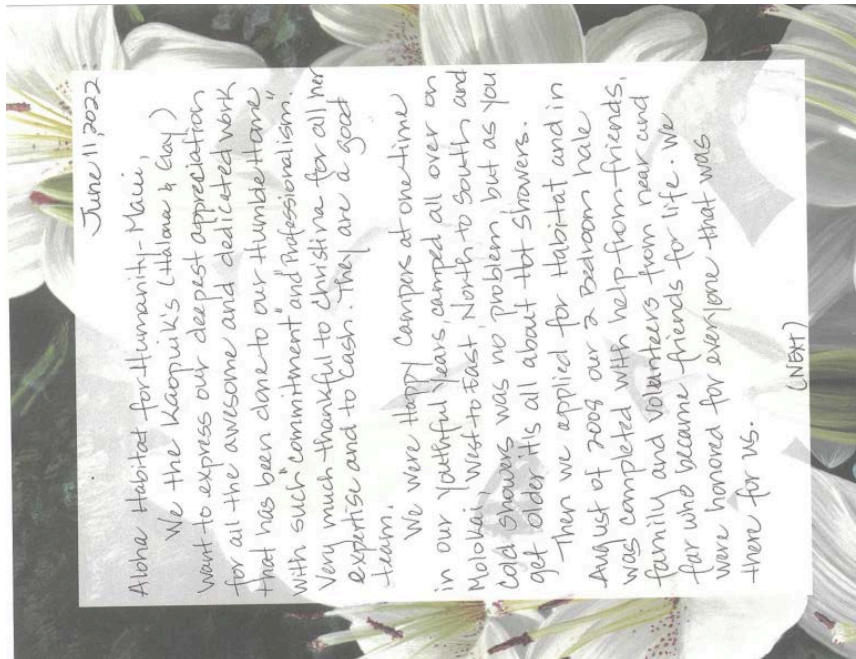 June 11, 2022
Aloha Habitat for Humanity-Maui,
We the Kaopuik's (Halona & Gay)
want to express our deepest appreciation
for all the awesome and dedicated work
that has been done to our "Humble Home"
with such "commitment" and "Professionalism."
Very much thankful to Christina for all her
expertise and to Cash. They are a good
team.
We were Happy Campers at one time
in our youthful years, camped all over on
Molokai, West to East, North to South and
Cold showers was no problem, but as you
get older it is all about Hot Showers.
Then we applied for Habitat and in
August of 2008 our 2 Bedroom hale
was completed with help from friends,
family and volunteers from near and
far who became friends for life. We
were honored for everyone that was
there for us.
(NEXT)